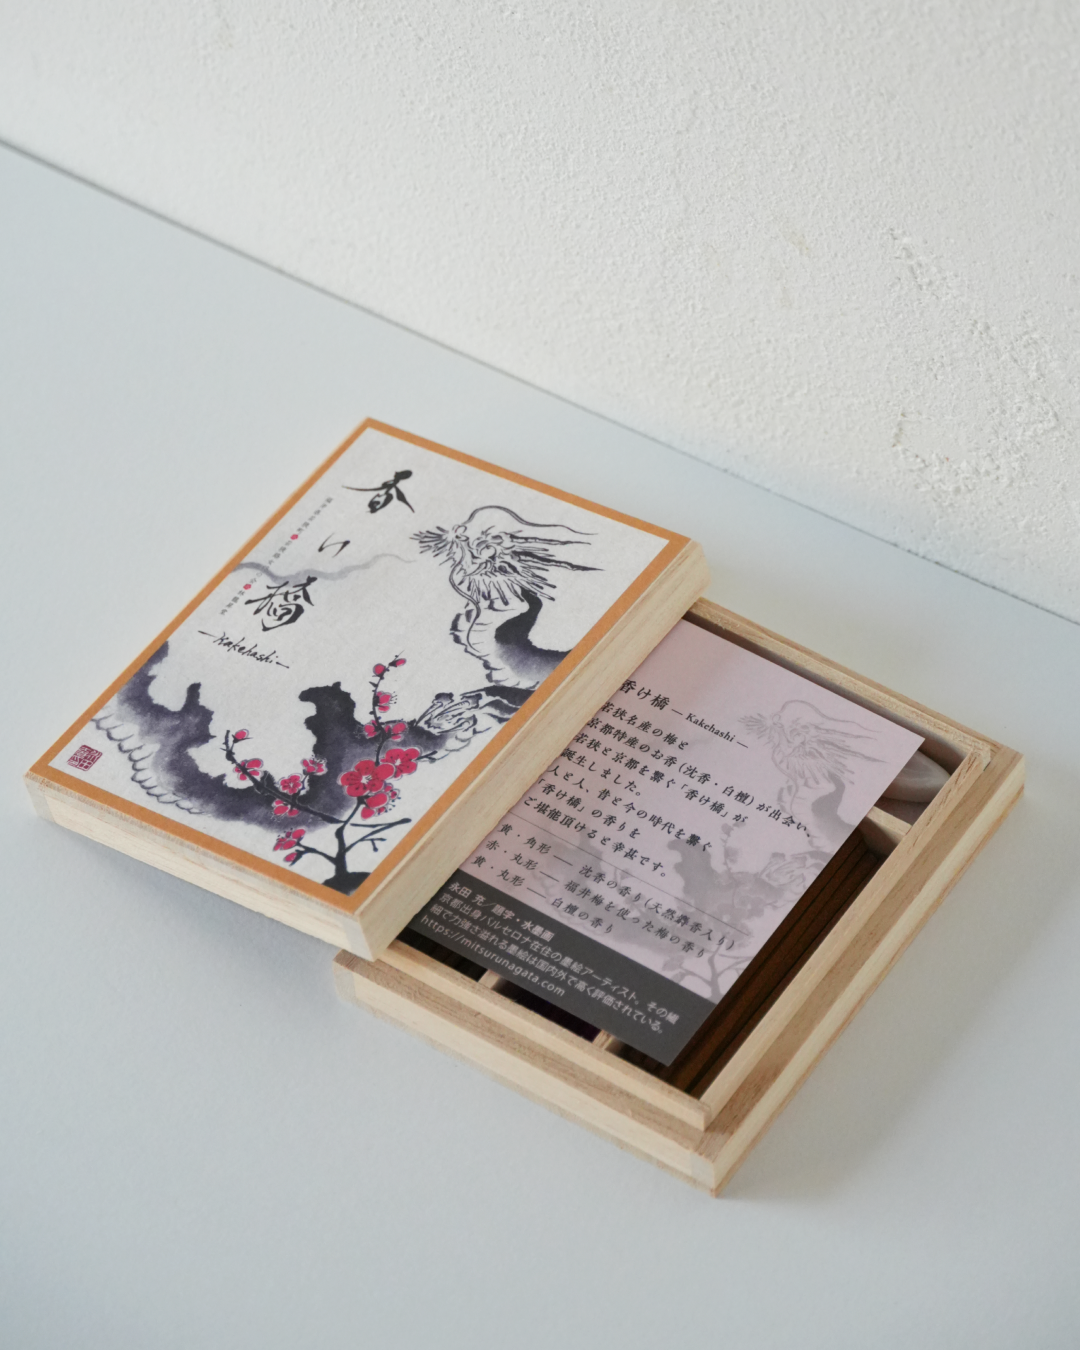 香
い
橋
—Kakehashi—
香け橋 — Kakehashi —
若狭名産の梅と
京都特産のお香(沈香・白檀)が出会い、
若狭と京都を繋ぐ「香け橋」が
誕生しました。
人と人、昔と今の時代を繋ぐ
「香け橋」の香りを
ご堪能頂けると幸甚です。
黄・角形 — 沈香の香り(天然麝香入り)
赤・丸形 — 福井梅を使った梅の香り
黄・丸形 — 白檀の香り
永田 充/題字・水墨画
京都出身バルセロナ在住の墨絵アーティスト。その繊
細で力強さ溢れる墨絵は国内外で高く評価されている。
https://mitsurunagata.com